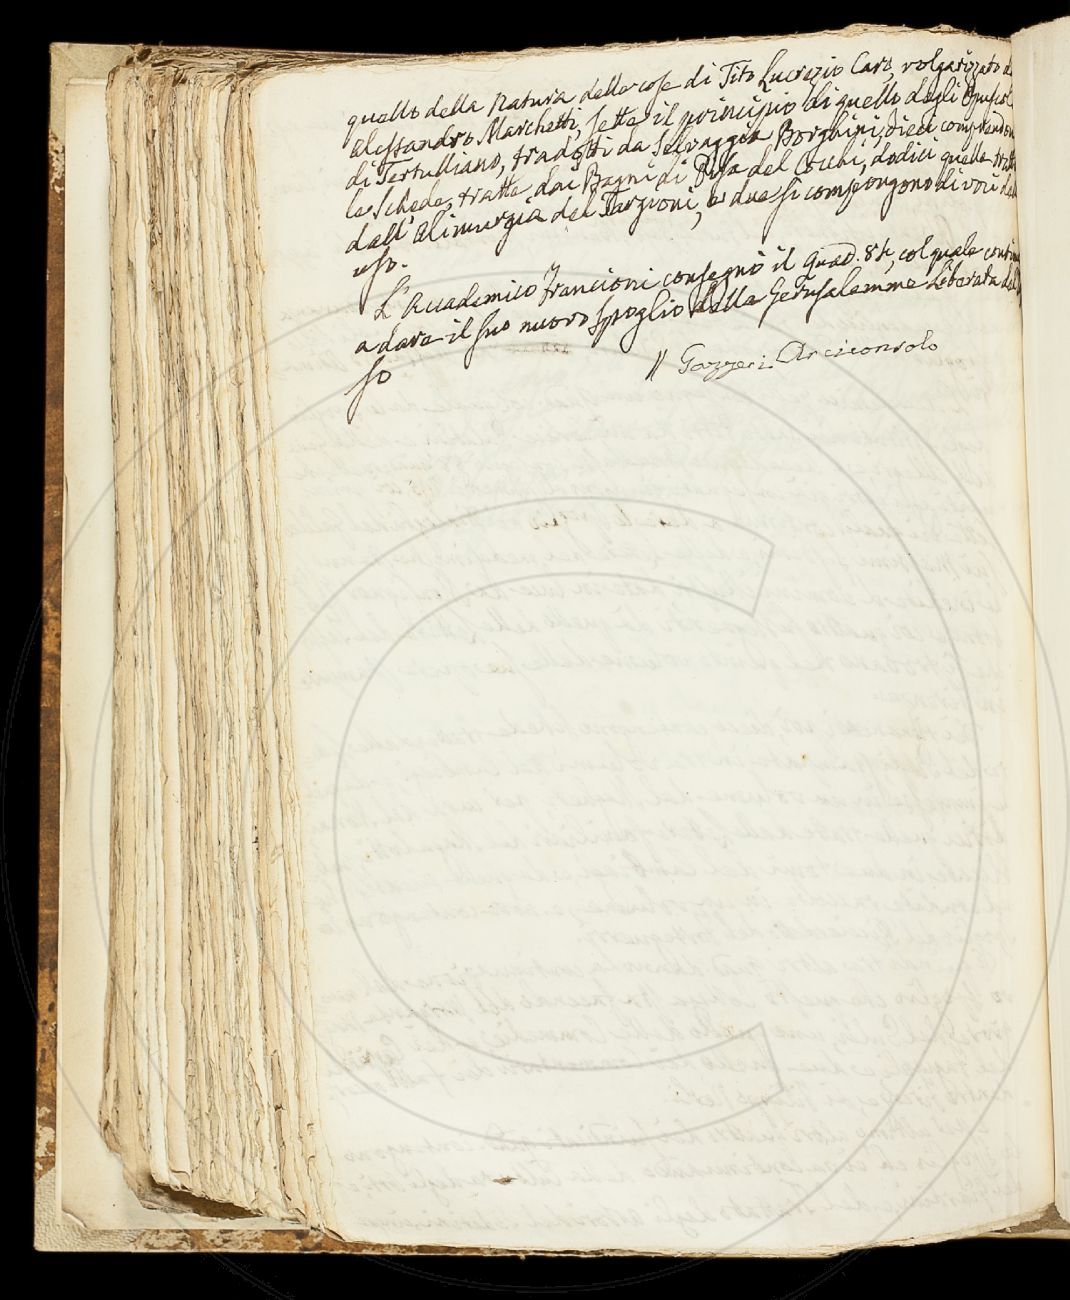 quello della Natura delle cose di Tito Lucrezio Caro, volgarizzato da
Alessandro Marchetti, sette il principio di quello degli Opuscoli
di Tertulliano, tradotti da Selvaggia Borghini, dieci comprendono
le Schede, tratte dai Bagni di Pisa del Cocchi, dodici quelle tratte
dall'Alimurgia del Targioni, e due si compongono di voci dell'
uso.
L'Accademico Francioni consegnò il quad. 84, col quale
a dare il suo nuovo spoglio della Gerusalemme Liberata del
so
// Gazzeri Arciconsolo